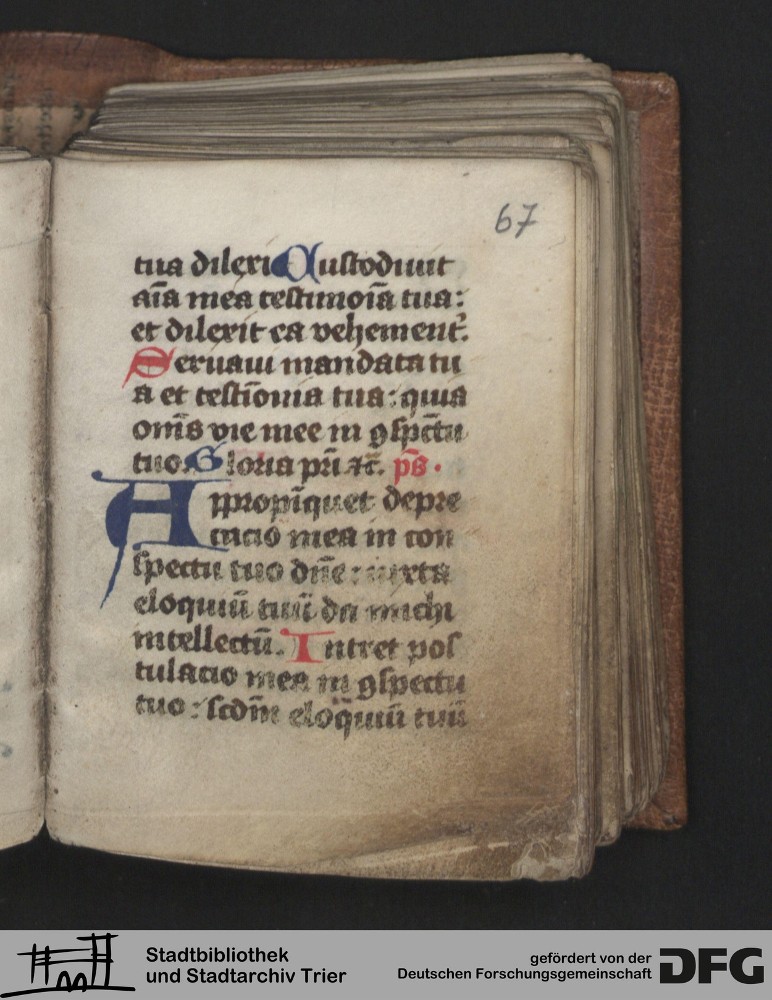 67
tua dilexi Custodiuit
aīa mea testimoīa tua:
et dilexit ea vehement᷑.
Seruaui mandata tu
a et testīonia tua: quia
om̄s vie mee in ꝯspc̄tu
tuo. Gloria pr̄i ⁊c̄. ps̄.
Appropīquet depre
cacio mea in con
spectu tuo dn̄e: iuxta
eloquiū tuū da michi
intellectū. Intret pos
tulacio mea in ꝯspectu
tuo: scd̄m eloq̄uiū tuū
Stadtbibliothek
und Stadtarchiv Trier
gefördert von der
Deutschen Forschungsgemeinschaft
DFG